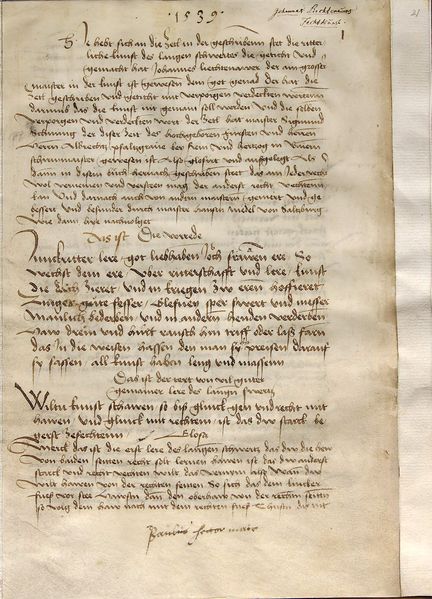 · 1539 ·
Johannes Liechtenawers
Fechtbuech
1
21
Hie hebt sich an die Zetl in der geschriben stet die ritter
liche kunst des langen schwertes die geticht und
gemacht hat Johannes liechtenawer der ain grosser
maister in der kunst ist gewesen dem got genad der hat die
Zetl geschriben und geticht mit verporgen verdeckten worten
darumb das die kunst nit gemain soll werden Und die selben
verporgen und verdeckten wort der Zetl hat maister Sigmund
Schining der diser Zeit des hochgeboren fursten und herren
herren Albrecht pfaltzgrave bey Rein und hertzog in Bairn
schirmaister gewesen ist Also glosirt und ausgelegt Als
dann in disem buch hernach geschriben stet das ain Jeder
wol vernemen und versten mag der anderst recht vechten
kan Und darnach auch von andern maistern gemert und ge
bessert und besunder durch maister hansen medel von Saltzburg
wie dann hie nachvolget
Das ist Die vorrede
Junckritter lere got liebhaben Joch frauen ere So
wechst dein ere vber ritterschafft und lere kunst
die dich zieret und in kriegen zw eren hoffieret
Ringes guete fesser Glefney sper swert und messer
Manlich bederben und in andern henden verderben
Haw drein und hurt rausch hin triff oder las farn
das in die weisen hassen den man sicht preisen darauf
sy fassen all kunst haben leng und massenn
Das ist der text von vil gueter
gemainer lere des langen swertz
Wiltu kunst schawen so biss glinck gen und recht mit
hawen und glinck mit rechtem ist das dw starck be
gerst zefechten Glosa
Merck das ist die erst lere des langen schwertz das dw die hew
von baiden seitten recht solt lernen hawen ist das dw anderst
starck und recht vechten wilt das vernym also Wan dw
wilt hawen von der rechten seiten So sich das dein lincker
fues vor stee Hawstu dan den oberhaw von der rechten seiten
so volg dem haw nach mit dem rechten fues Thustu das nit
Paulus Hector mair